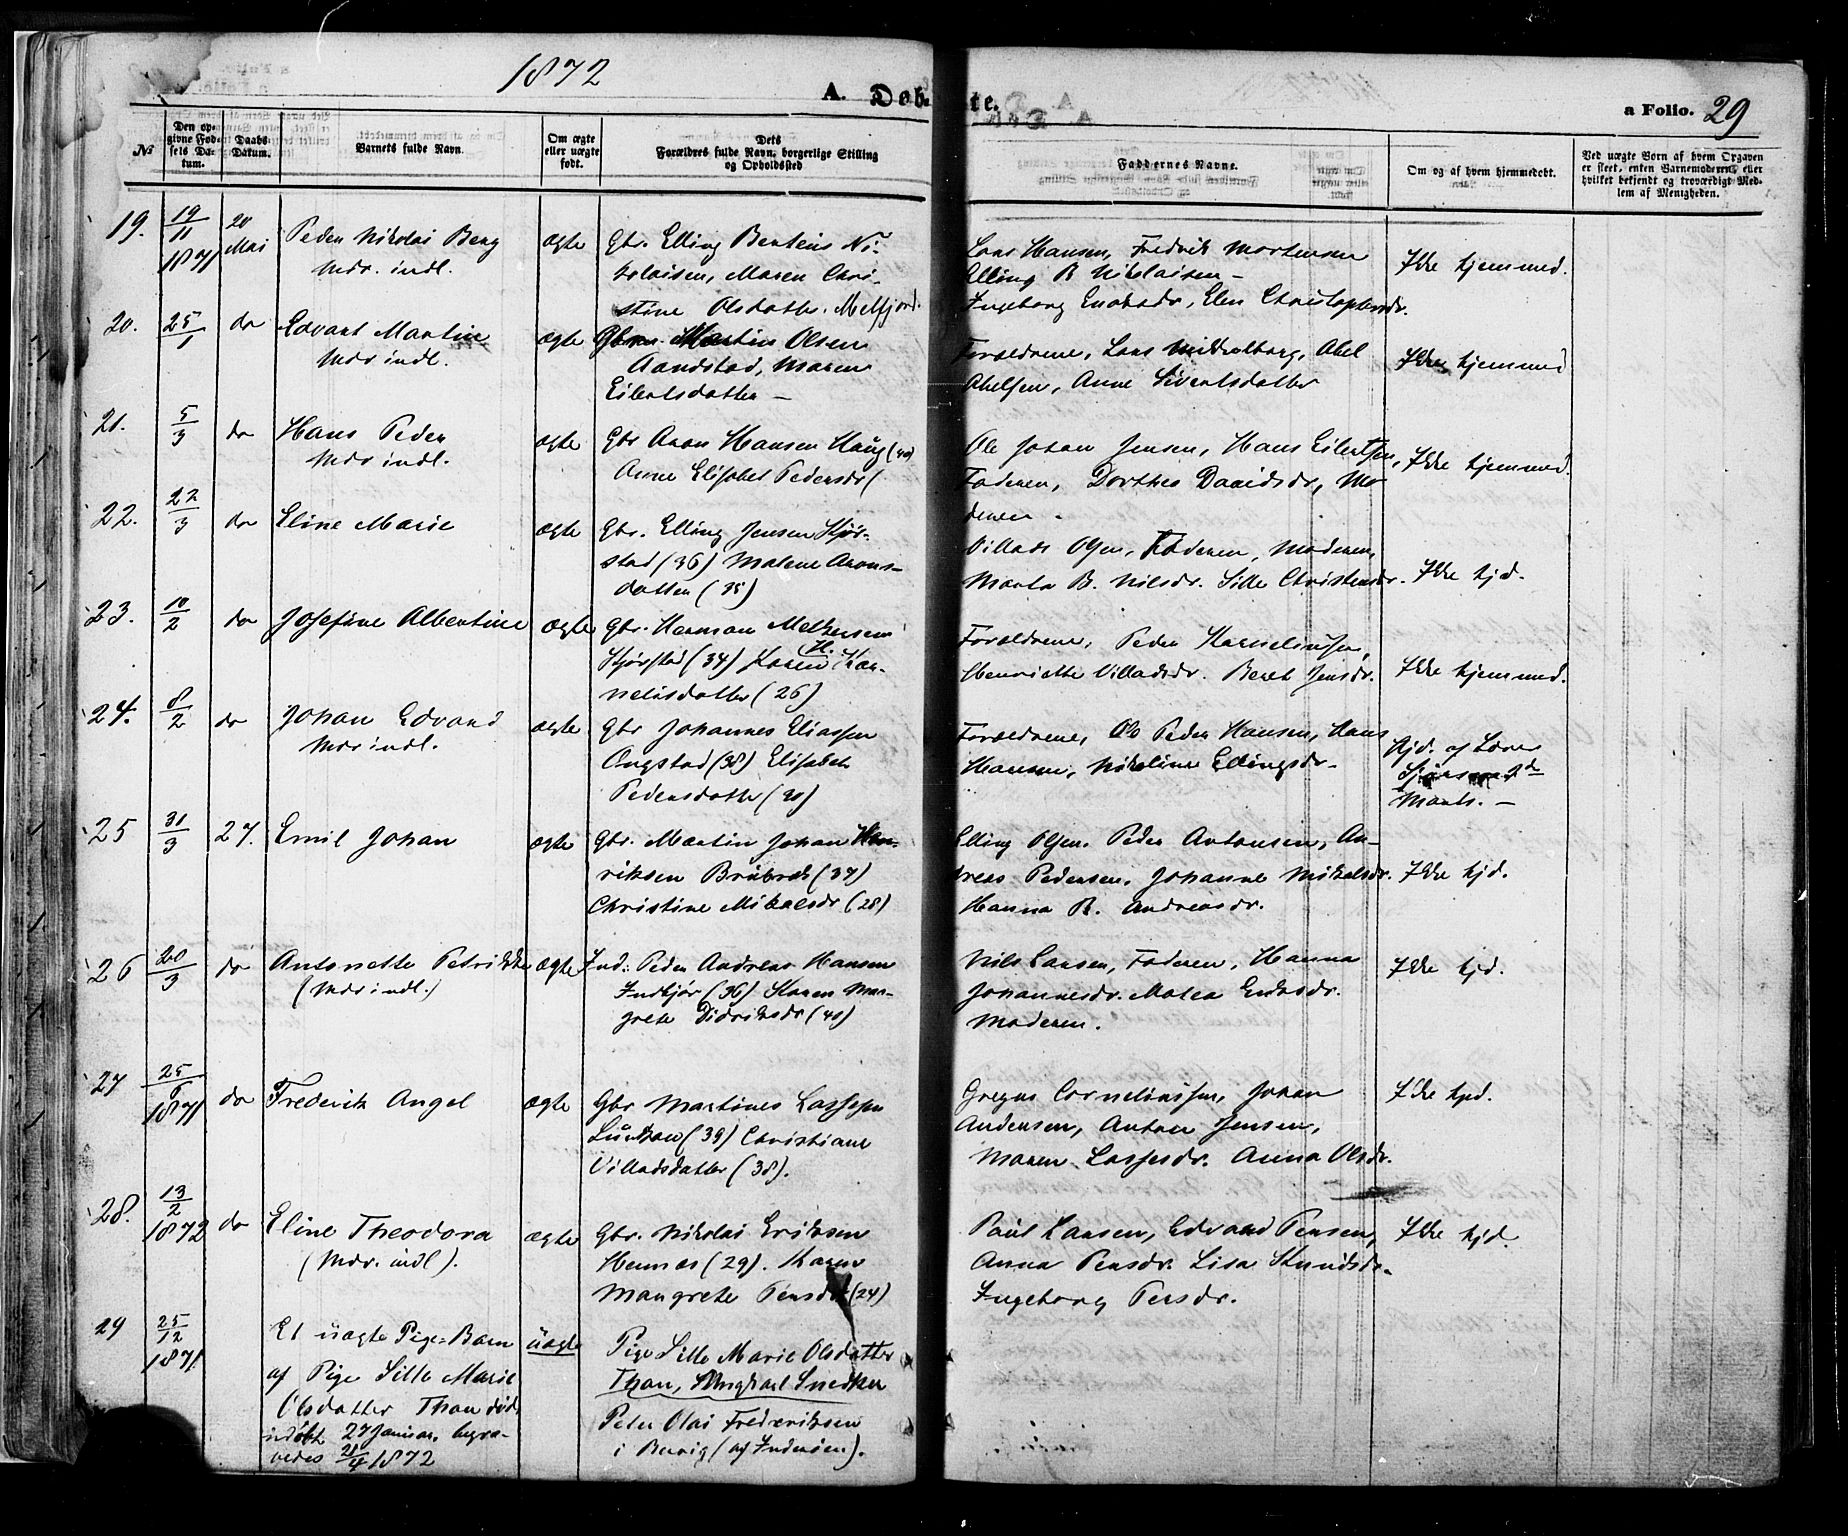 1872
A. Døb-
te.
a Folio. 29
№
Den op-
givne Fød-
sels Da-
tum.
Daabs-
Datum.
Barnets fulde Navn.
Om ægte
eller uægte
født.
Dets
Forældres fulde Navn, borgerlige Stilling
og Opholdssted
Faddernes Navne.
Om og af hvem hjemmedøbt.
Ved uægte Børn af hvem Opgaven
er skeet, enten Barnemoderen, eller
hvilket bekjendt og troværdigt Med-
lem af Menigheden.
19. 19/11 1871 20 Mai
Peder Nikolai Berg
Mdr. indl.
ægte
Gbr. Elling Benteus Ni-
kolaisen, Maren Chri-
stine Olsdatter. Melfjord.
Lars Hansen, Fredrik Mortensen
Elling B Nikolaisen -
Ingeborg Enoksdr, Elen Christophersdr.
Ikke hjemmed.
20. 25/1 do
Edvart Martin
Mdr indl.
ægte
Gbr. Martin Olsen
Aandstad, Maren
Eilertsdatter -
Forældrene, Lars Mikkelborg, Abel
Abelsen, Anne Sivertsdatter
Ikke hjemmed
21. 5/3 do
Hans Peder
Mdr indl.
ægte
Gbr Aron Hansen Haug (40)
Anne Elisabet Pedersdr (
Ole Johan Jensen, Hans Eilertsen,
Faderen, Dorthea Davidsdr, Mo-
deren -
Ikke hjemmed.
22. 22/3 do
Eline Marie
ægte
Gbr. Elling Jensen Kjør-
stad (36) Malene Arons-
datter (35)
Villads Olsen, Faderen, Moderen,
Marta B. Nilsdr. Sille Christensdr.
Ikke hjd.
23. 10/2 do
Josefine Albertine
ægte
Gbr. Herman Methusen
Kjørstad (34) Karen H. Kor-
neliusdatter (26)
Forældrene, Peder Korneliussen,
Henriette Villadsdr. Beret Jensdr.
Ikke hjemmed.
24. 8/2 do
Johan Edvard
Mdr indl.
ægte
Gbr Johannes Eliassen
Ongstad (38) Elisabet
Pedersdatter (30)
Forældrene, Ole Peder Hansen, Hans
Hansen, Nikoline Ellingsdr.
Hjd. af Lærer
Marts. -
25 31/3 27.
Emil Johan
ægte
Gbr. Martin Johan Hen-
riksen (37)
Christine Mikalsdr (28)
Elling Olsen. Peder Antonsen, An-
dreas Pedersen. Johanne Mikalsdr.
Hanna B. Andreasdr.
Ikke hjd.
26 20/3 do
Antonette Petrikke
(Mdr indl.)
ægte
Ind: Peder Andreas Hansen
Indkjør (36) Karen Mar-
grete Didriksdr (40)
Nils Larsen, Faderen, Hanna
Johannesdr. Matea Eriksdr.
Moderen.
Ikke hjd.
27 25/6 1871 do
Frederik Angel
ægte
Gbr Martines Lassesen
(39) Christiane
Villadsdatter (38).
Gregus Corneliussen, Johan
Andersen, Anton Jensen,
Maren Lassesdr. Anna Olsdr.
Ikke hjd.
28. 13/2 1872 do
Eline Theodora
(Mdr. indl).
ægte
Gbr. Nikolai Eriksen
Hennes (29). Karen
Mangrete Pensdr (24)
Paul Larsen, Edvard Pensen,
Anna Pensdr. Lisa Knudsdr.
Ingeborg Persdr.
Ikke hjd.
29 25/12 1871
Et uægte Pige-Barn
af Pige Sille Marie
Olsdatter Than død
udøbt 27 Januar, begra-
vedes 21/4 1872
uægte
Pige Sille Marie Olsdatter
Than, Ungkarl Snedker
Peter Olai Frederiksen
i Bervig (af Inderøen).